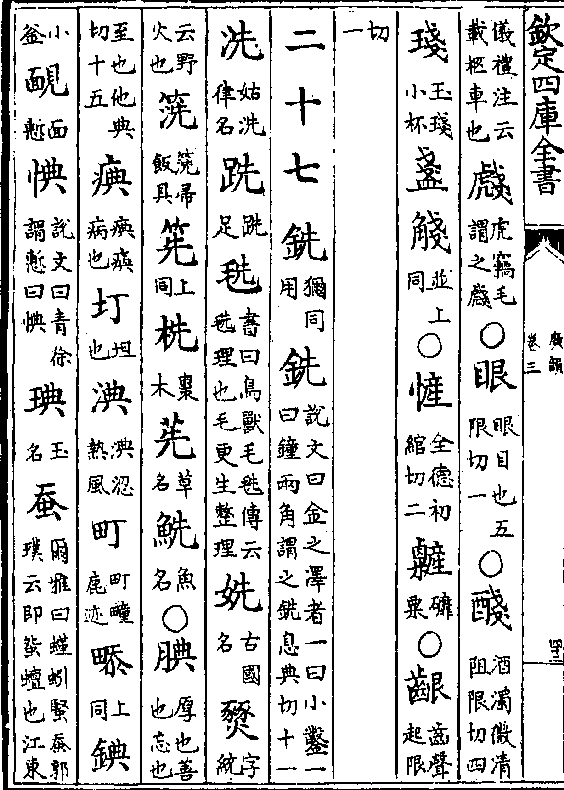 欽定四庫全書
廣韻
卷三
儀禮注云載柩車也 虦虎竊毛謂之虦 ○眼眼目也五限切一 ○醆酒濁微清阻限切四
琖玉琖小杯 盞 㔊並上同 ○㦃全德初綰切二 䊲礦粟 ○齦齒聲起限
切一
二十七 銑獮同用 銑說文曰金之澤者一曰小鑿一曰鐘兩角謂之銑息典切十一
洗姑洗律名 跣跣足 毨書曰鳥獸毛毨傳云毨理也毛更生整理 姺古國名 㷟字統
云野火也 筅筅帚飯具 箲上同 桄棗木 𦯈草名 鮮魚名 ○腆厚也善也忘也
至也他典切十五 痶痶瘓病也 圢坦也 淟淟涊熱風 町町疃鹿迹 㖭上同 錪
小釜 靦面慙 㥏說文曰青徐謂慙曰㥏 琠玉名 蚕爾雅曰螼蚓豎蚕郭璞云即蛩蟺也江東